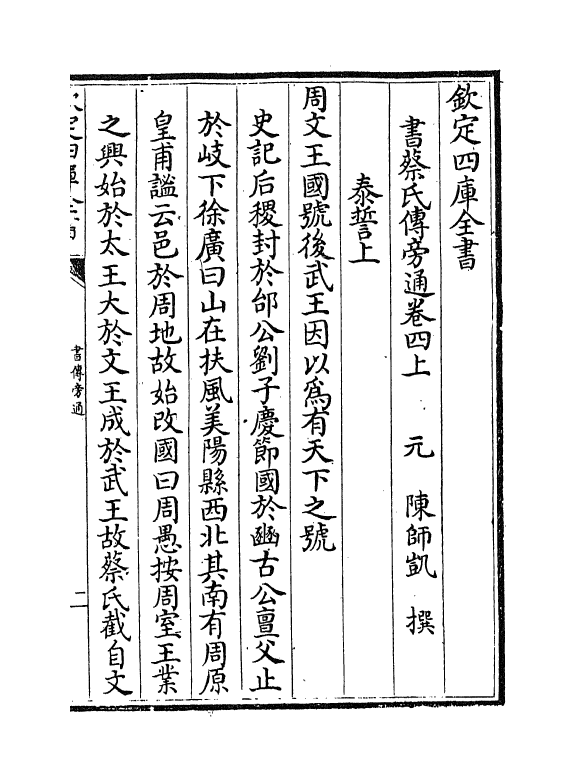 欽定四庫全書
書蔡氏傳旁通卷四上　元　陳師凱　撰
泰誓上
周文王國號後武王因以為有天下之號
史記后稷封於邰公劉子慶節國於豳古公亶父止
於岐下徐廣曰山在扶風美陽縣西北其南有周原
皇甫謐云邑於周地故始改國曰周愚按周室王業
之興始於太王大於文王成於武王故蔡氏截自文
欽定四庫全書
書傳旁通
二